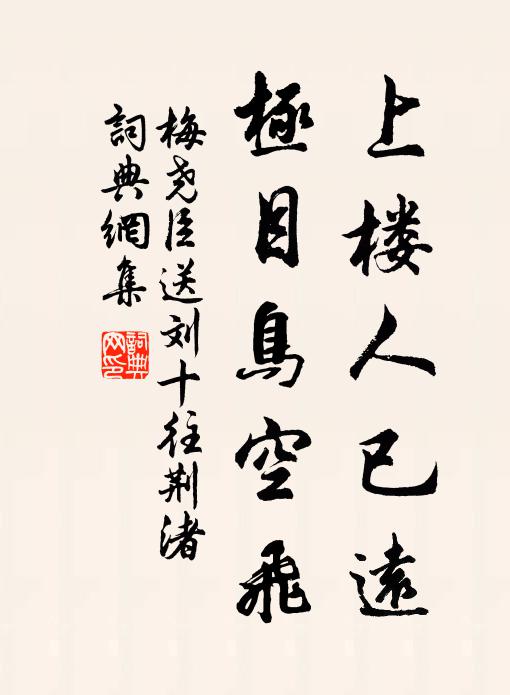 上楼人已遠
極目鳥空飛
梅尧臣送刘十往荆渚
詞典網集
詞典网印